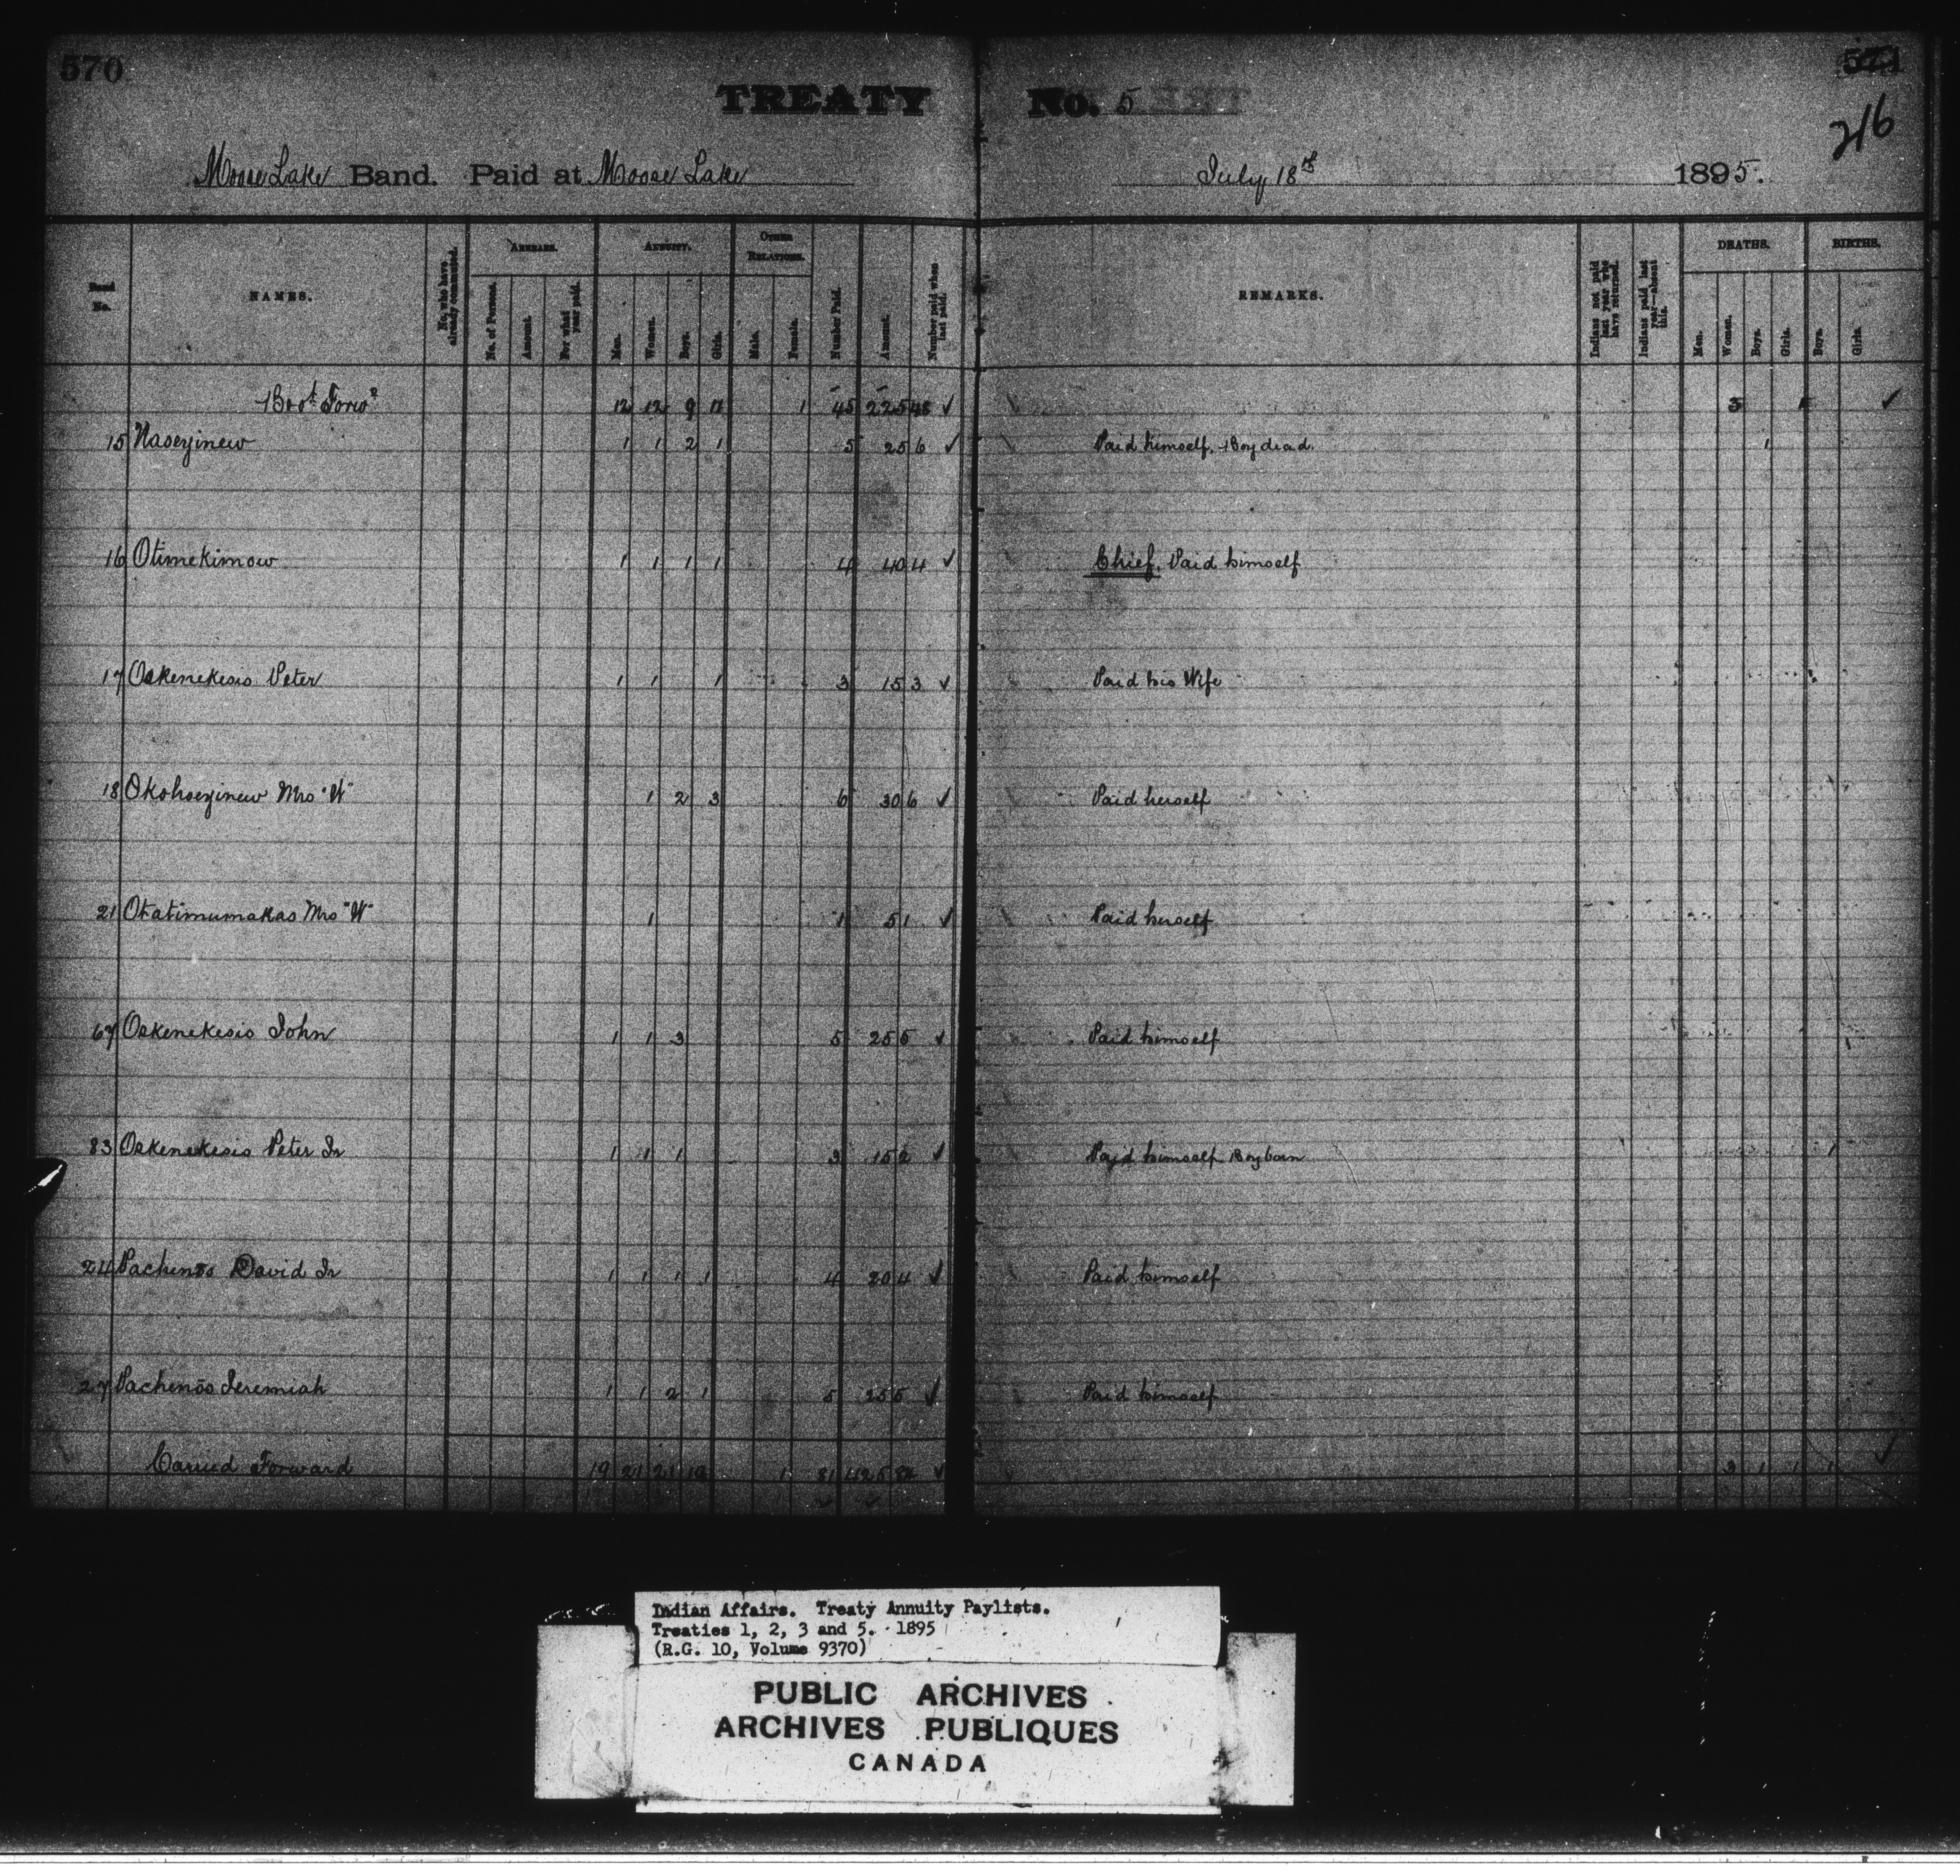 570
571
216
TREATY No. 5
Moose Lake Band. Paid at Moose Lake July 18th 1895.
Band No. NAMES. No. who have already commuted. ARREARS. ANNUITY. OTHER RELATIONS. Number Paid. Amount. Number paid when last paid. REMARKS. Indians not paid last year who have returned. Indians paid last year—absent this. DEATHS. BIRTHS.
No. of Persons. Amount. For what year paid. Men. Women. Boys. Girls. Male. Female. Men. Women. Boys. Girls. Boys. Girls.
Brot Forwd 12 12 9 11 1 45 225 48 ✓ 3 ✓
15 Naoeyinew 1 1 2 1 5 25 6 ✓ Paid himself, Boy dead. 1
16 Otimekimow 1 1 1 1 4 40 4 ✓ Chief. Paid himself
17 Oskenekesis Peter 1 1 1 3 15 3 ✓ Paid his Wife
18 Okohoeyinew Mrs "W" 1 2 3 6 30 6 ✓ Paid herself
21 Otatimumakas Mrs "W" 1 1 5 1 ✓ Paid herself
67 Oskenekesis John 1 1 3 5 25 5 ✓ Paid himself
83 Oskenekesis Peter Jr 1 1 1 3 15 2 ✓ Paid himself Boy born 1
24 Pachenos David Jr 1 1 1 1 4 20 4 ✓ Paid himself
27 Pachenos Jeremiah 1 1 2 1 5 25 5 ✓ Paid himself
Carried Forward 19 21 21 19 1 81 425 84 ✓ 3 1 1 1 ✓
Indian Affairs. Treaty Annuity Paylists.
Treaties 1, 2, 3 and 5. 1895
(R.G. 10, Volume 9370)
PUBLIC ARCHIVES
ARCHIVES PUBLIQUES
CANADA